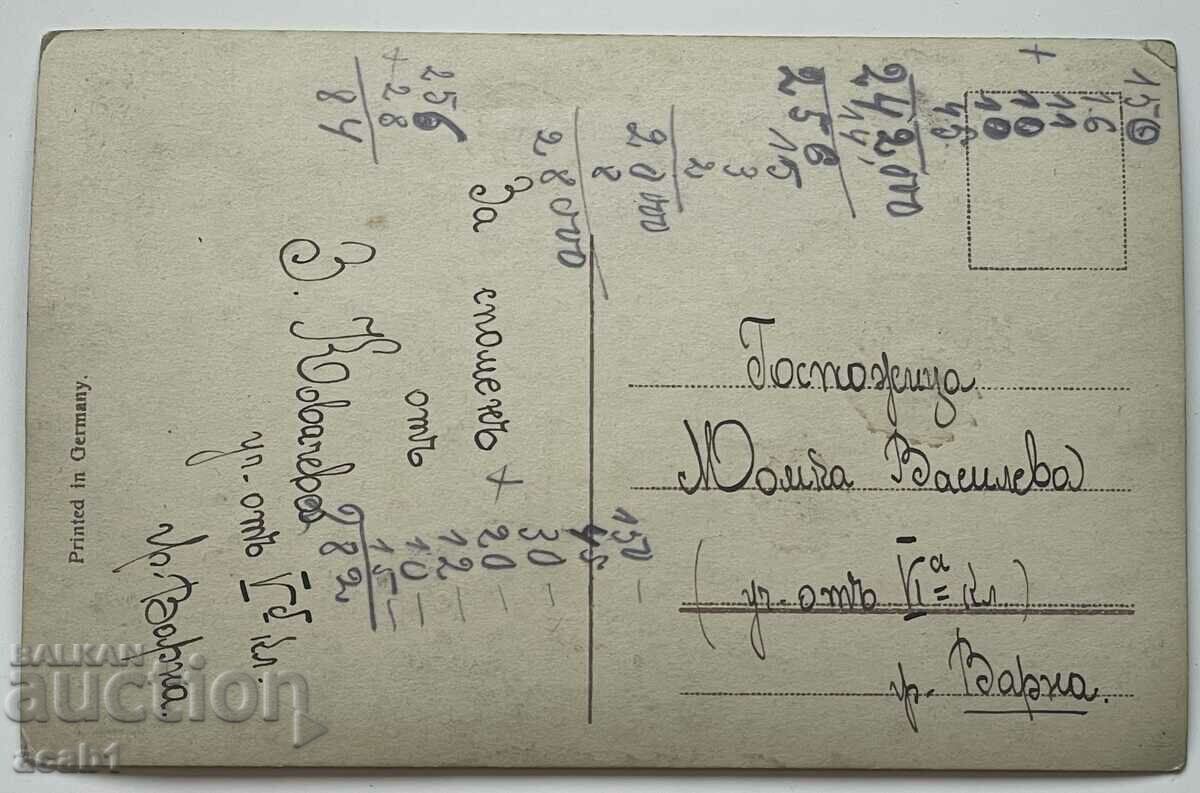 За споменъ
отъ
З. Ковачева
уч-отъ V б кл.
гр. Варна.
Госпожица
Василева
(уч-отъ VI а кл.)
гр. Варна.
Printed in Germany.
256
+ 28
84
15
3
2
20
8
28
242
14
256
+
16
11
10
10
45
150
45
30
20
12
10
15
282
BALKAN
auction
acab1